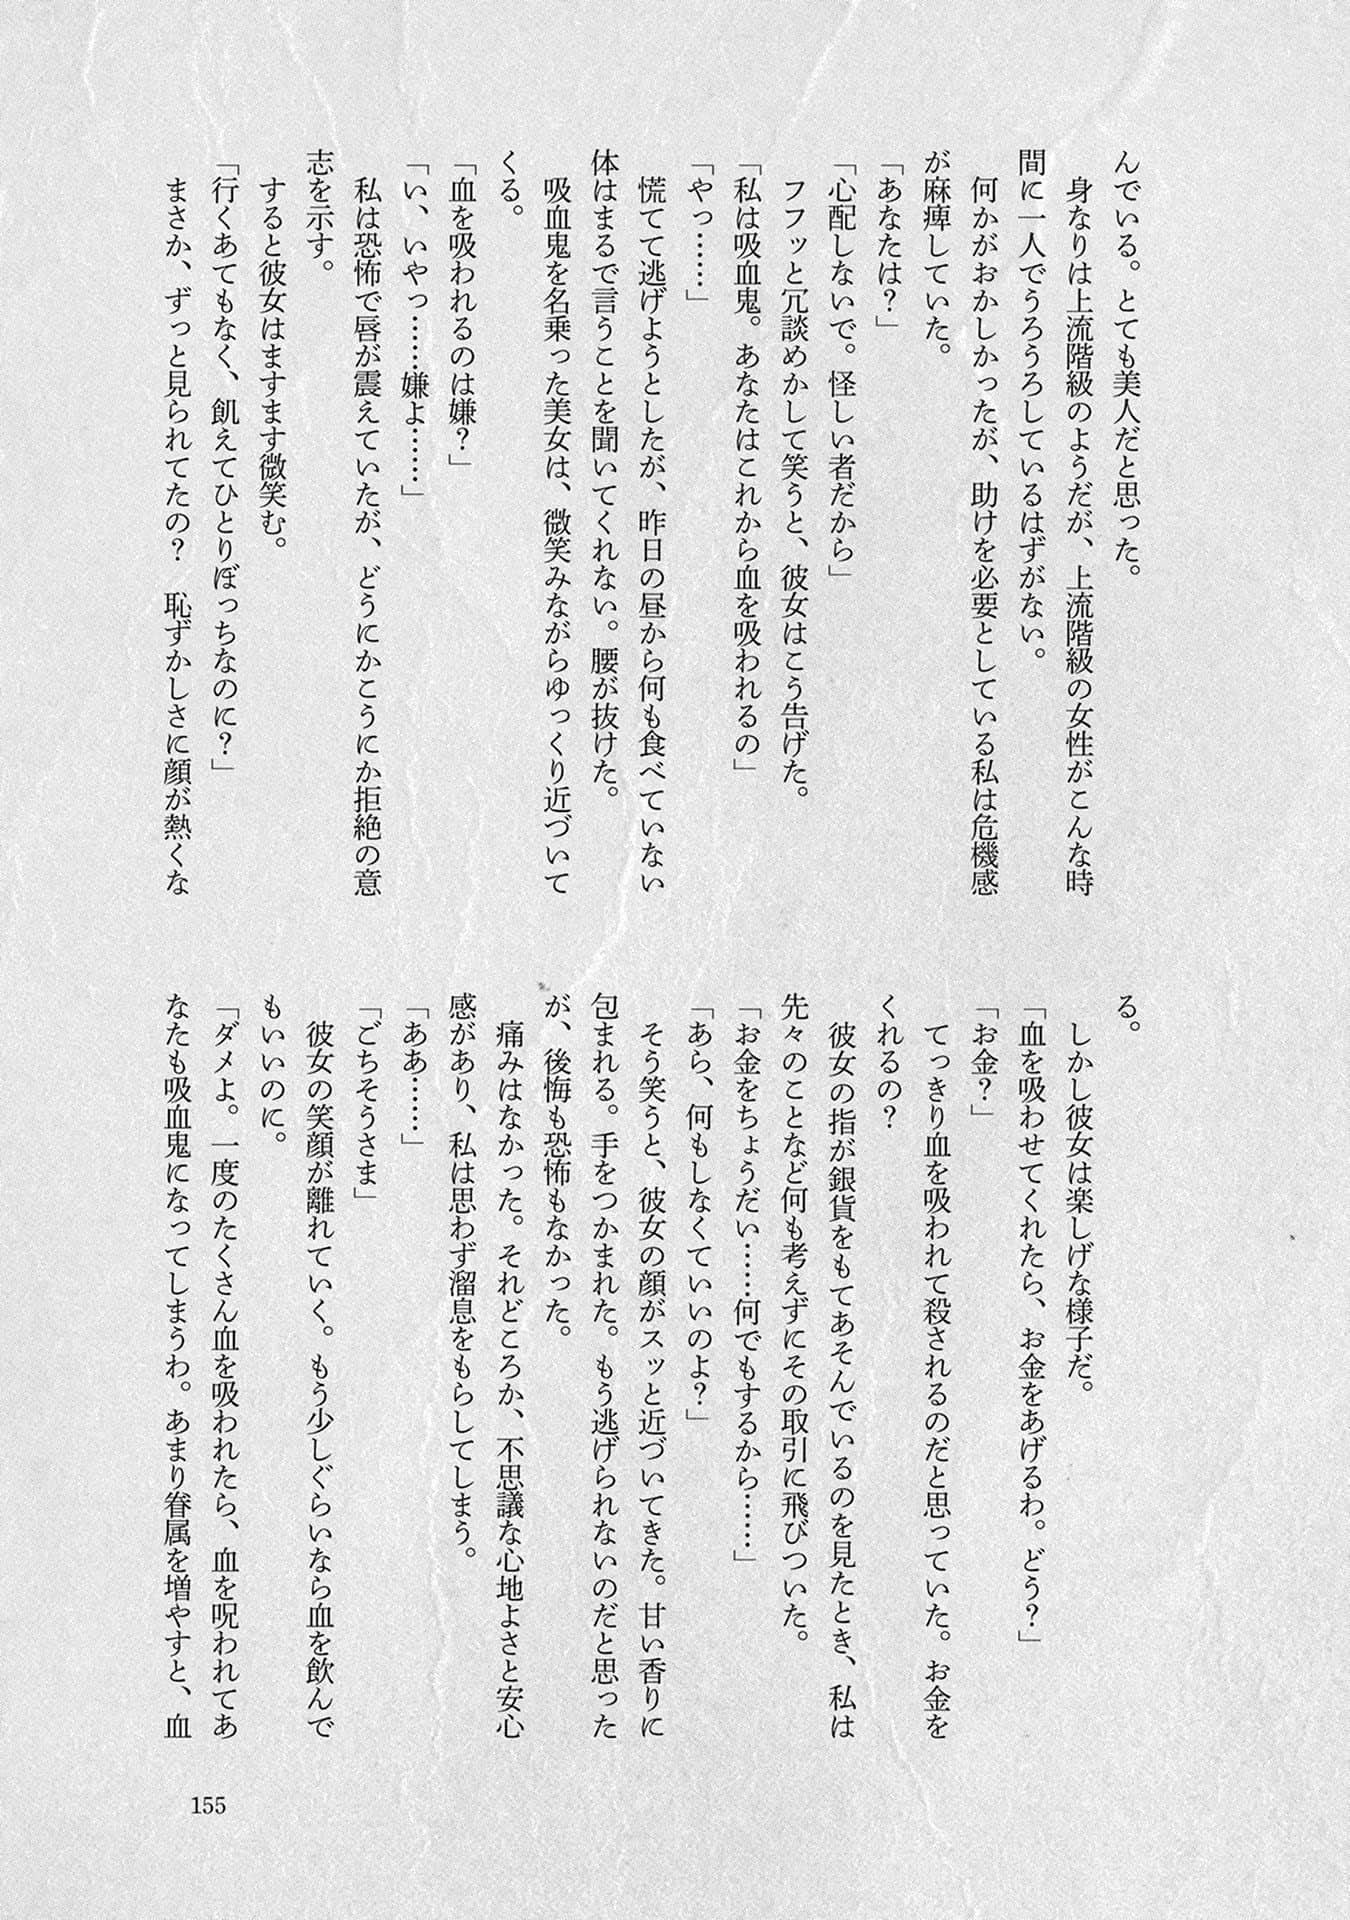 んでいる。とても美人だと思った。
　身なりは上流階級のようだが、上流階級の女性がこんな時
間に一人でうろうろしているはずがない。
　何かがおかしかったが、助けを必要としている私は危機感
が麻痺していた。
「あなたは？」
「心配しないで。怪しい者だから」
　フフッと冗談めかして笑うと、彼女はこう告げた。
「私は吸血鬼。あなたはこれから血を吸われるの」
「やっ……」
　慌てて逃げようとしたが、昨日の昼から何も食べていない
体はまるで言うことを聞いてくれない。腰が抜けた。
　吸血鬼を名乗った美女は、微笑みながらゆっくり近づいて
くる。
「血を吸われるのは嫌？」
「い、いやっ……嫌よ……」
　私は恐怖で唇が震えていたが、どうにかこうにか拒絶の意
志を示す。
　すると彼女はますます微笑む。
「行くあてもなく、飢えてひとりぼっちなのに？」
　まさか、ずっと見られてたの？　恥ずかしさに顔が熱くな
る。
　しかし彼女は楽しげな様子だ。
「血を吸わせてくれたら、お金をあげるわ。どう？」
「お金？」
　てっきり血を吸われて殺されるのだと思っていた。お金を
くれるの？
　彼女の指が銀貨をもてあそんでいるのを見たとき、私は
先々のことなど何も考えずにその取引に飛びついた。
「お金をちょうだい……何でもするから……」
「あら、何もしなくていいのよ？」
　そう笑うと、彼女の顔がスッと近づいてきた。甘い香りに
包まれる。手をつかまれた。もう逃げられないのだと思った
が、後悔も恐怖もなかった。
　痛みはなかった。それどころか、不思議な心地よさと安心
感があり、私は思わず溜息をもらしてしまう。
「ああ……」
「ごちそうさま」
　彼女の笑顔が離れていく。もう少しぐらいなら血を飲んで
もいいのに。
「ダメよ。一度のたくさん血を吸われたら、血を呪われてあ
なたも吸血鬼になってしまうわ。あまり眷属を増やすと、血
155